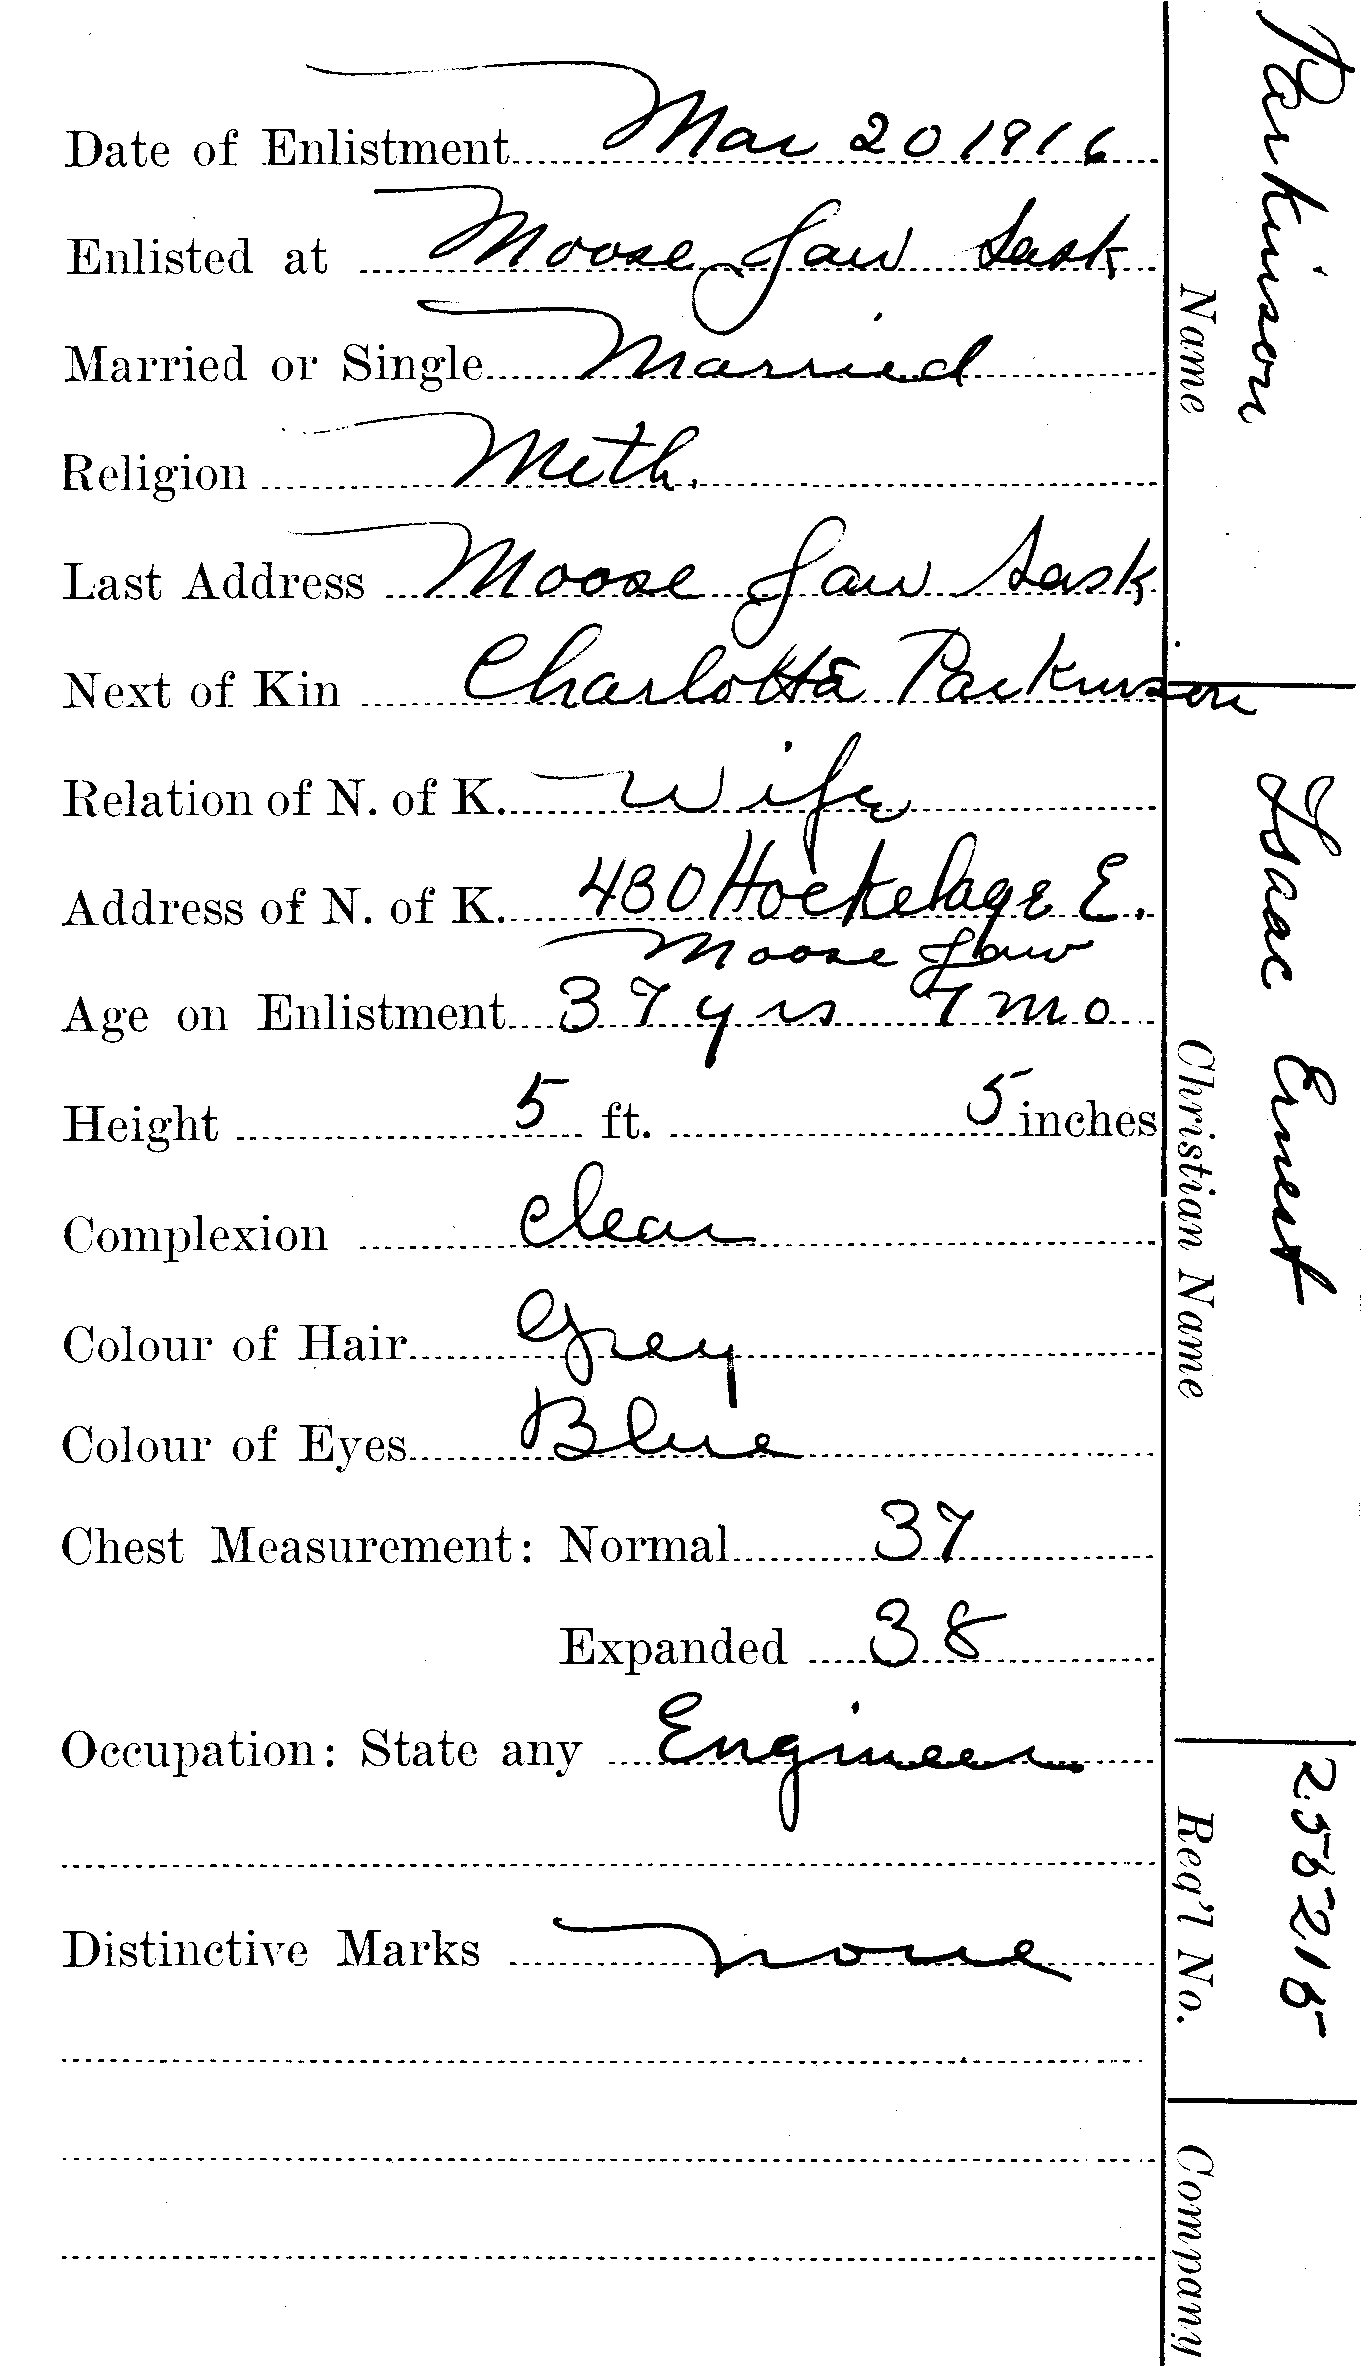 Date of Enlistment Mar 20 1916
Enlisted at Moose Jaw Sask
Married or Single Married
Religion Meth.
Last Address Moose Jaw Sask
Next of Kin Charlotta Parkinson
Relation of N. of K. Wife
Address of N. of K. 430 Hockelage E.
Moose Jaw
Age on Enlistment 37 yrs 7 mo
Height 5 ft. 5 inches
Complexion clear
Colour of Hair Grey
Colour of Eyes Blue
Chest Measurement: Normal 37
Expanded 38
Occupation: State any Engineer
Distinctive Marks none
Parkinson
Name
Isaac Ernest
Christian Name
255215
Reg'l No.
Company